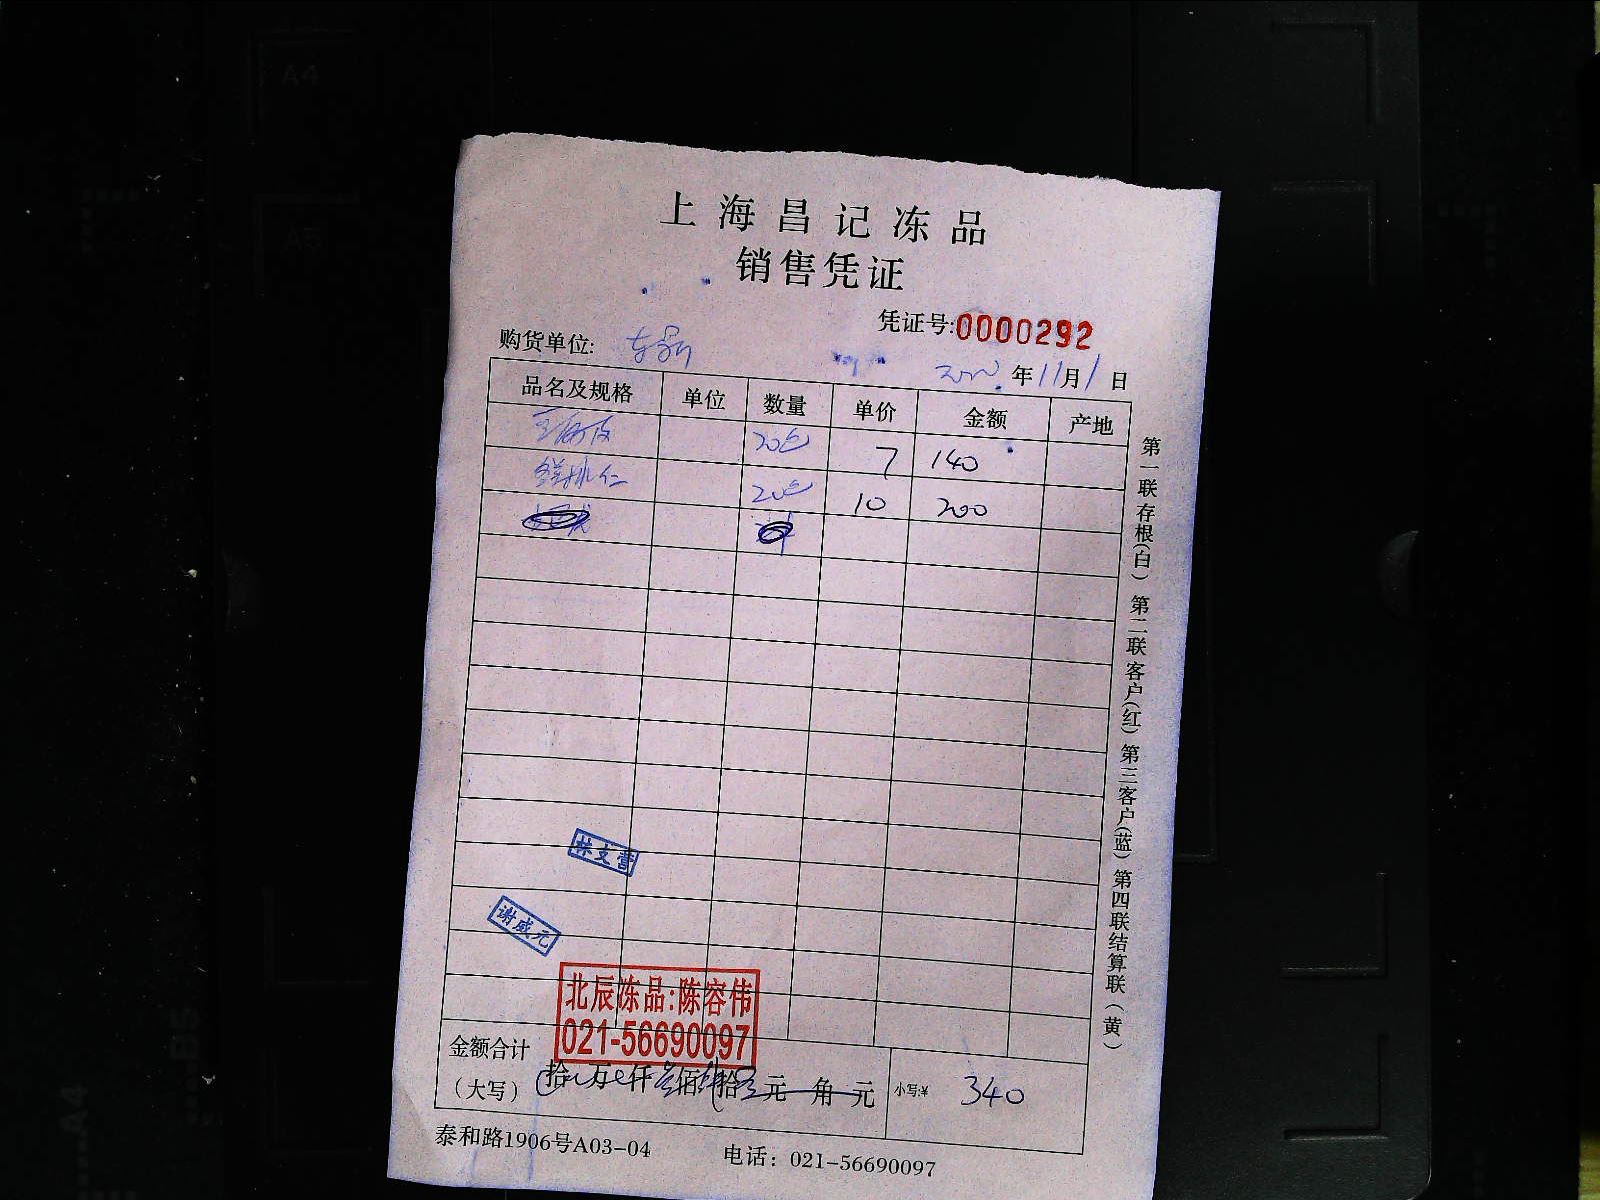 上海昌记冻品
销售凭证
凭证号:0000292
购货单位:
年11月1日
品名及规格 单位 数量 单价 金额 产地
20包 7 140
鲜虾仁 20包 10 200
林支营
谢威元
北辰冻品:陈容伟
021-56690097
金额合计
(大写) 拾 万 仟 叁佰 肆拾 元 角 元 小写:¥ 340
泰和路1906号A03-04 电话：021-56690097
第一联存根(白) 第二联客户(红) 第三客户(蓝) 第四联结算联(黄)
A4
A5
B5
A4